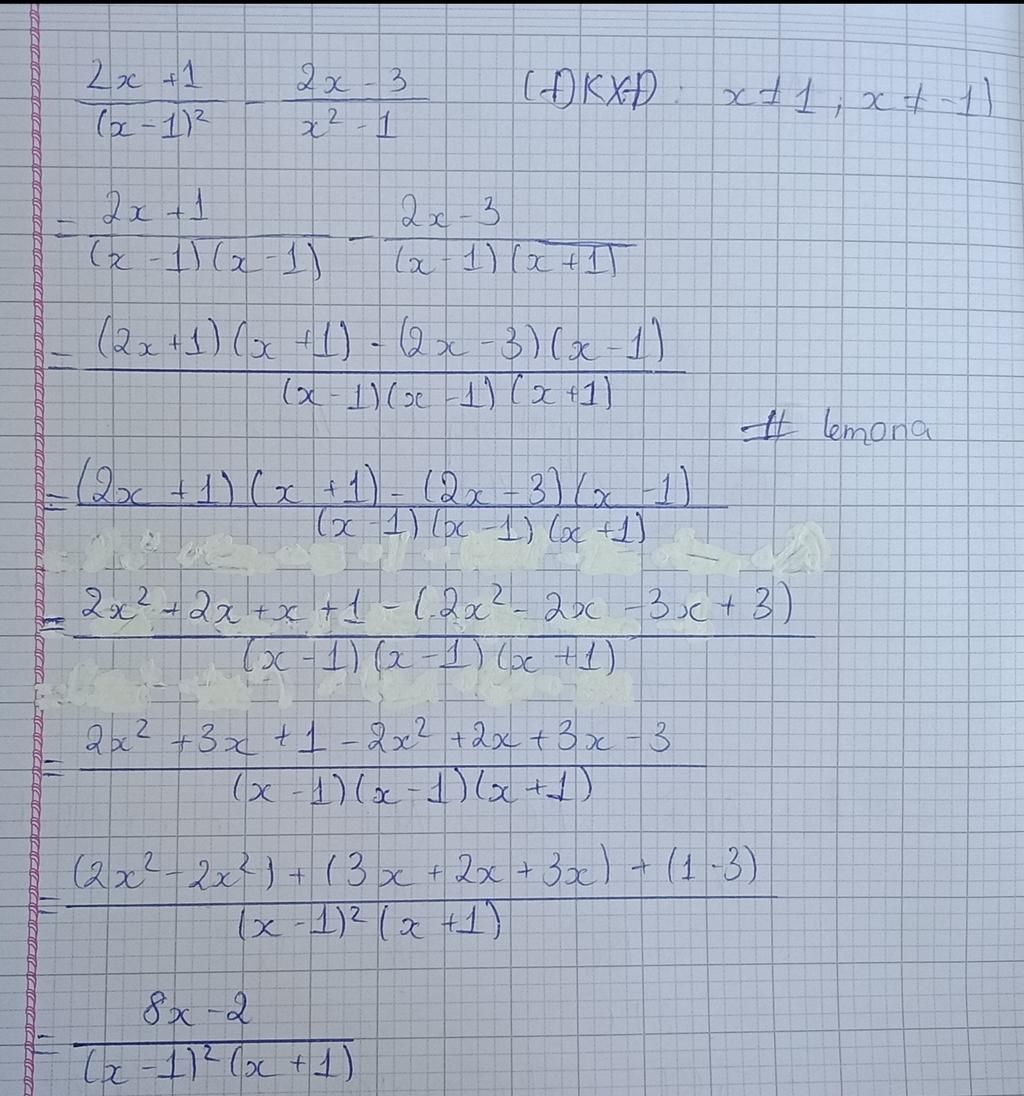 (2x + 1)/(x - 1)² - (2x - 3)/(x² - 1) (ĐKXĐ: x ≠ 1; x ≠ -1)
= (2x + 1)/((x - 1)(x - 1)) - (2x - 3)/((x - 1)(x + 1))
= ((2x + 1)(x + 1) - (2x - 3)(x - 1))/((x - 1)(x - 1)(x + 1))
# lemona
= ((2x + 1)(x + 1) - (2x - 3)(x - 1))/((x - 1)(x - 1)(x + 1))
= (2x² + 2x + x + 1 - (2x² - 2x - 3x + 3))/((x - 1)(x - 1)(x + 1))
= (2x² + 3x + 1 - 2x² + 2x + 3x - 3)/((x - 1)(x - 1)(x + 1))
= ((2x² - 2x²) + (3x + 2x + 3x) + (1 - 3))/((x - 1)²(x + 1))
= (8x - 2)/((x - 1)²(x + 1))